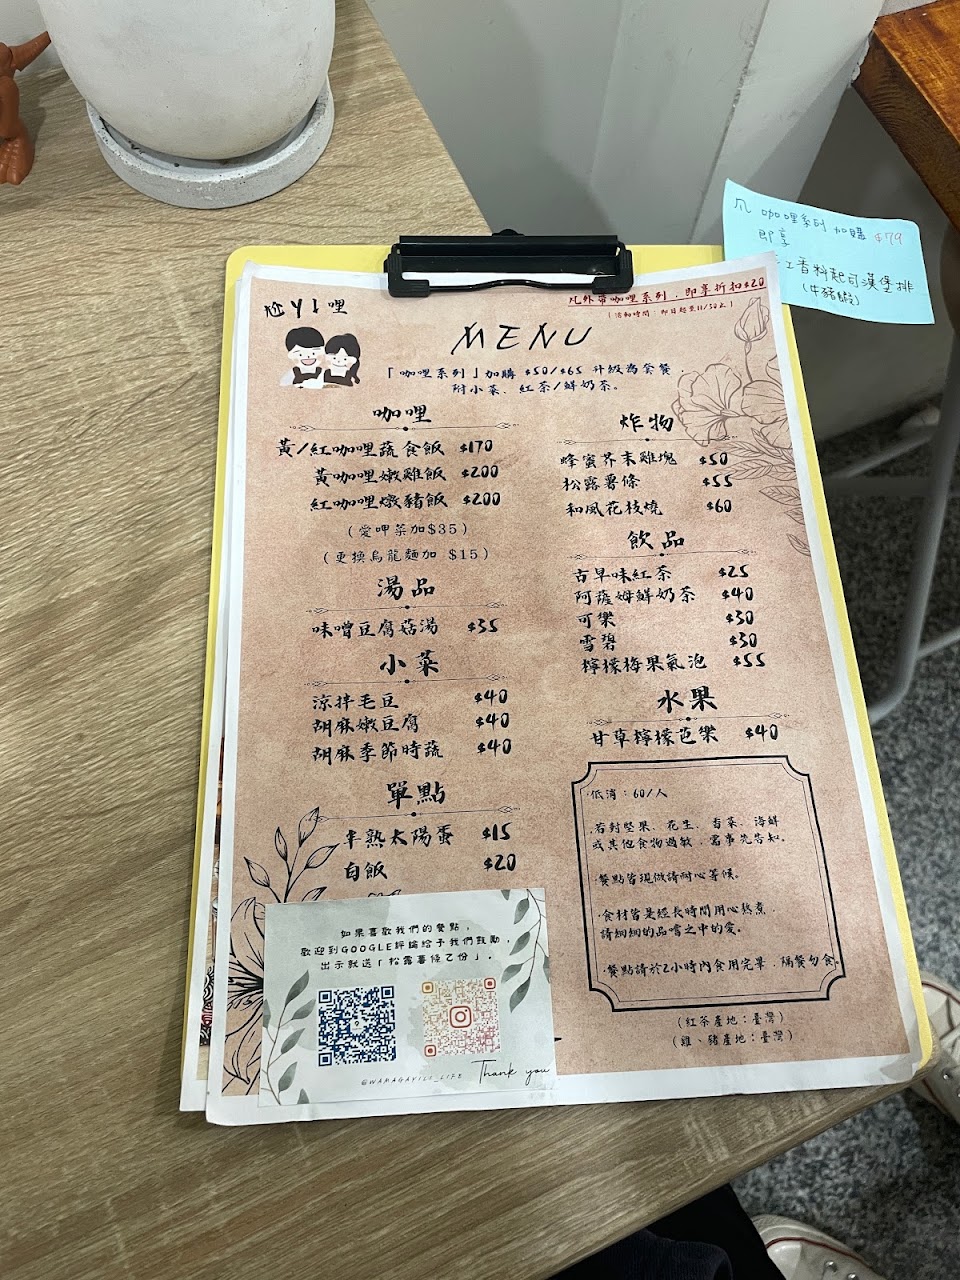 凡 咖哩系列 加購 $79
即享
紅香料起司漢堡排
(牛豬製)
凡外帶咖哩系列,即享折扣$20
(活動時間:即日起至11/30止)
MENU
「咖哩系列」加購 $50/$65 升級為套餐,
附小菜、紅茶/鮮奶茶。
咖哩
黃/紅咖哩蔬食飯 $170
黃咖哩嫩雞飯 $200
紅咖哩燉豬飯 $200
(愛呷菜加$35)
(更換烏龍麵加 $15)
湯品
味噌豆腐菇湯 $35
小菜
涼拌毛豆 $40
胡麻嫩豆腐 $40
胡麻季節時蔬 $40
單點
半熟太陽蛋 $15
白飯 $20
炸物
蜂蜜芥末雞塊 $50
松露薯條 $55
和風花枝燒 $60
飲品
古早味紅茶 $25
阿薩姆鮮奶茶 $40
可樂 $30
雪碧 $30
檸檬梅果氣泡 $55
水果
甘草檸檬芭樂 $40
·低消:60/人
·若對堅果、花生、香菜、海鮮
或其他食物過敏,需事先告知。
·餐點皆現做請耐心等候。
·食材皆是經長時間用心熬煮,
請細細的品嚐之中的愛。
·餐點請於2小時內食用完畢,隔餐勿食
(紅茶產地:臺灣)
(雞、豬產地:臺灣)
如果喜歡我們的餐點,
歡迎到GOOGLE評論給予我們鼓勵,
出示就送「松露薯條乙份」。
Thank you